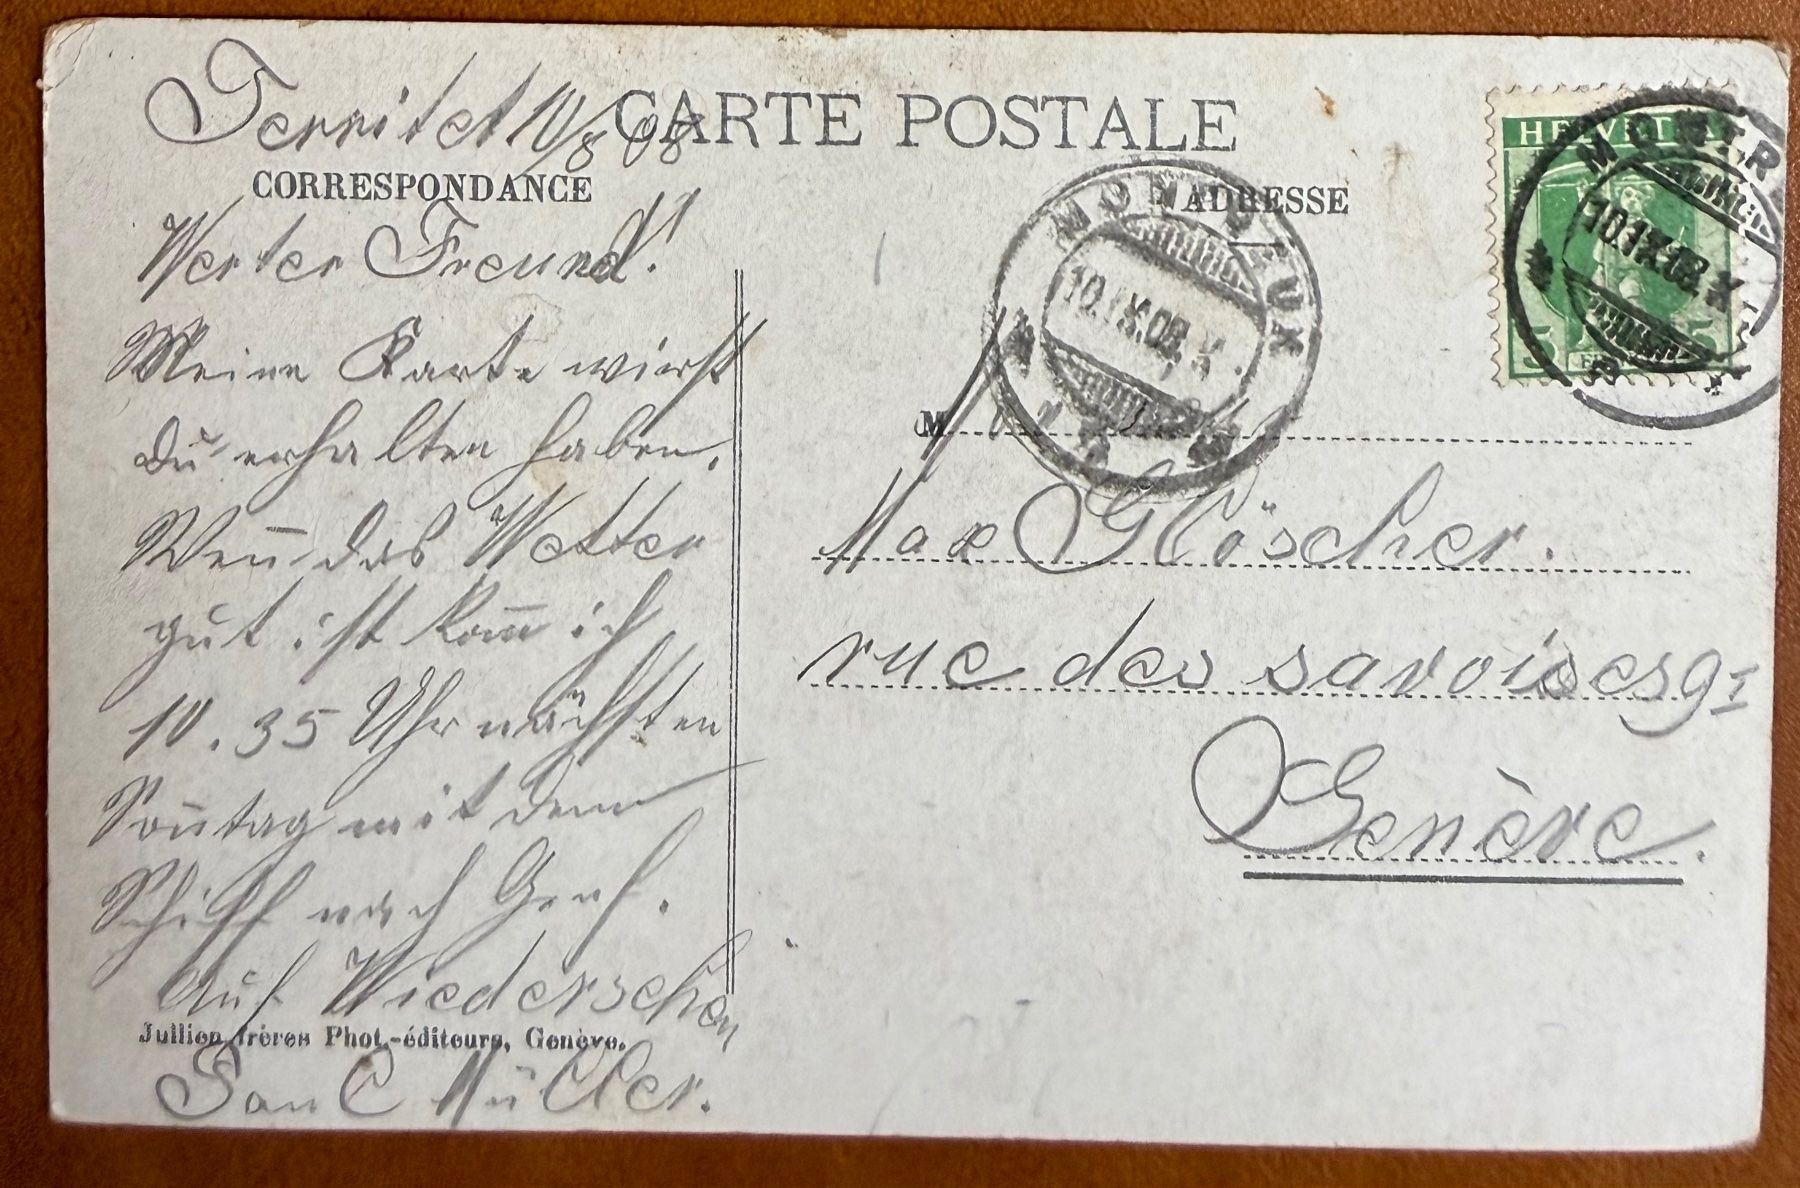 Territet 10/8 08
CARTE POSTALE
CORRESPONDANCE
ADRESSE
Werter Freund!
Meine Karte wirst
Du erhalten haben.
Wen̄ das Wetter
gut ist kom̄ ich
10.35 Uhr nächsten
Son̄tag mit dem
Schiff nach Genf.
Auf Wiedersehen
Paul Müller.
Jullien frères Phot.-éditeurs, Genève.
HELVETIA
5 5
MONTREUX
10.IX.08. X
MONTREUX
10.IX.08. X
M
Max Glöscher.
rue des savoises 9 I
Genève.